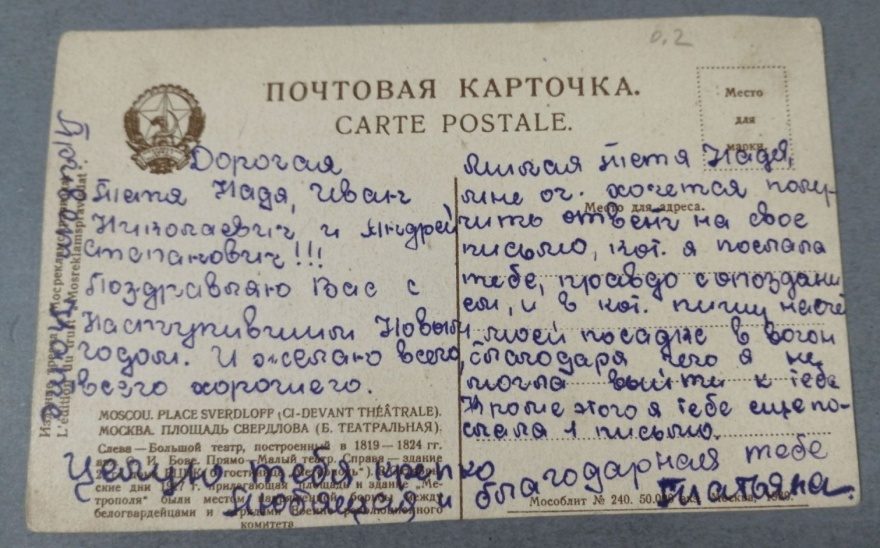 0,2
ПОЧТОВАЯ КАРТОЧКА.
CARTE POSTALE.
Место
для
марки
Место для адреса.
Дорогая
тетя Надя, Иван
Николаевич и Андрей
Степанович!!!
Поздравляю Вас с
Наступившим Новым
годом. И желаю всего,
всего хорошего.
Целую тебя крепко
Любящая и
милая тетя Надя,
мне оч. хочется полу-
чить ответ на свое
письмо, кот. я послала
тебе, правдо с опоздани
ем, и в кот. пишу насчё
моей посадке в вогон
благодаря чего я не
могла выйти к тебе
Кроме этого я тебе еще по-
слала 1 письмо.
благодарная тебе
Татьяна.
MOSCOU. PLACE SVERDLOFF (CI-DEVANT THÉÂTRALE).
МОСКВА. ПЛОЩАДЬ СВЕРДЛОВА (Б. ТЕАТРАЛЬНАЯ).
Слева — Большой театр, построенный в 1819—1824 гг.
И. Бове. Прямо — Малый театр. Справа — здание
прилегающая площадь и здание „Ме-
трополя" были местом борьбы между
белогвардейцами и отрядами Военно-революционного
комитета
Мособлит № 240. 50.000 экз. Москва,
L'édition du trust „Mosreklamspravizdat".